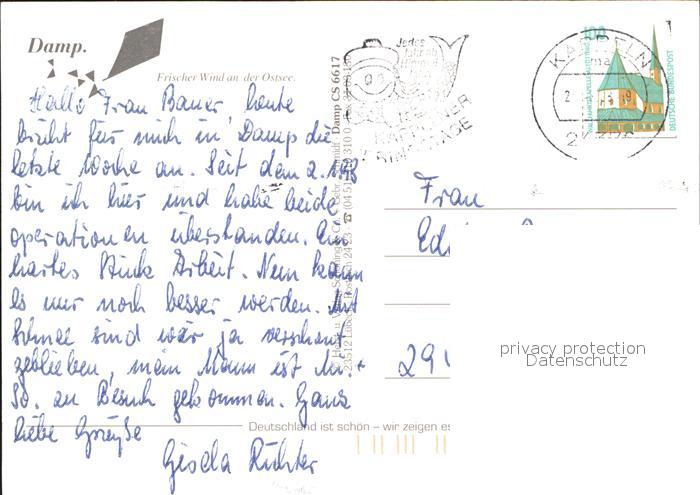 Damp.
Frischer Wind an der Ostsee.
Hallo Frau Bauer, heute
bricht für mich in Damp die
letzte Woche an. Seit dem 2.1.93
bin ich hier und habe beide
operationen überstanden. Ein
hartes Stück Arbeit. Nun kann
es nur noch besser werden. Mit
Schnee sind wir ja verschont
geblieben, mein Mann ist Mi. +
So. zu Besuch gekommen. Ganz
liebe Grüße
Gisela Richter
Damp CS 6617
Jedes
KAPPELN
DEUTSCHE BUNDESPOST
Frau
29
privacy protection
Datenschutz
Deutschland ist schön – wir zeigen es